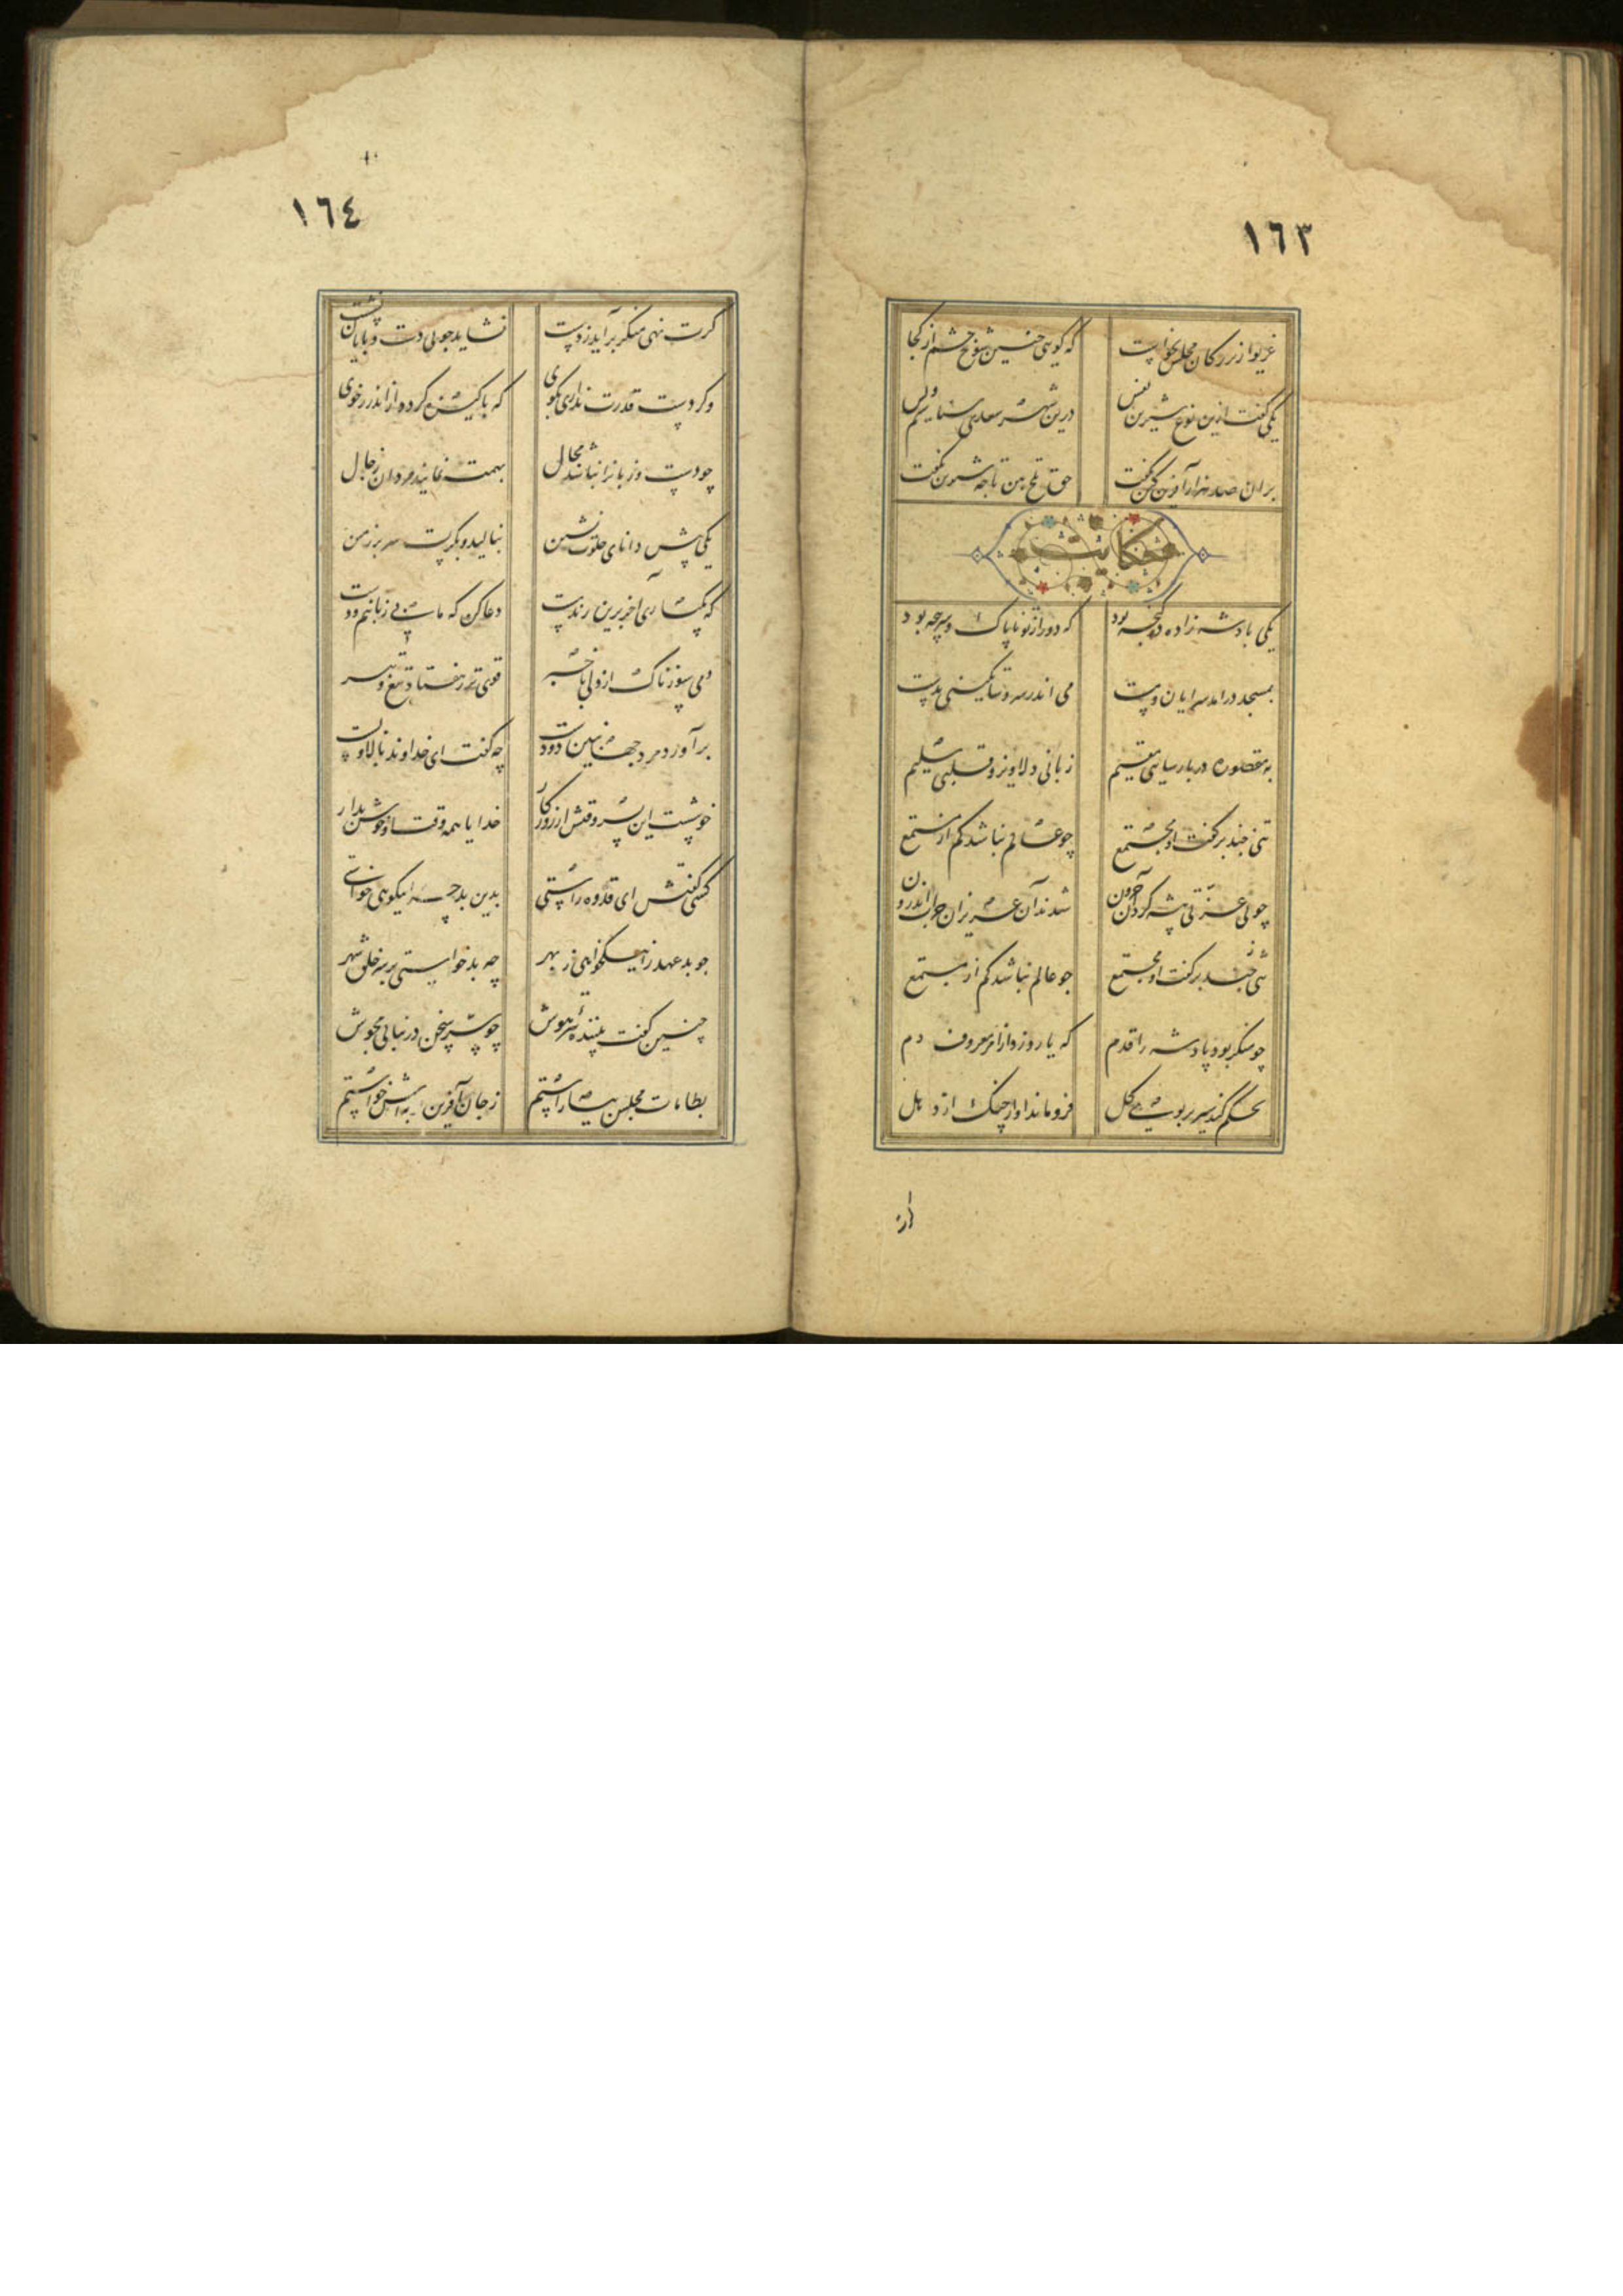 ١٦٣
غریو از بزرگان مجلس بخواست که گویی چنین شوخ چشم از کجا
یکی گفت ازین نوع شیرین نفس درین شهر سعدی شناسیم و بس
بران صد هزار آفرین کین بگفت حق تلخ بین تا چه شیرین بگفت
حکایت
یکی پادشه زاده در گنجه بود که دور از تو ناپاک و سرپنجه بود
بمسجد درآمد سرایان و مست می اندر سر و ساتگینی بدست
به مقصوره در پارسایی مقیم زبانی دلاویز و قلبی سلیم
تنی چند بر گفت او مجتمع چو عالم نباشد کم از مستمع
چو بی عزتی پیشه کرد آن حرون شدند آن عزیزان خراب اندرون
تنی چند بر گفت او مجتمع چو عالم نباشد کم از مستمع
چو منکر بود پادشه را قدم که یارد زد از امر معروف دم
تحکم کند سیر بر بوی گل فرو ماند آواز چنگ از دهل
١٦٤
گرت نهی منکر برآید ز دست نشاید چو بی دست و پایان نشست
وگر دست قدرت نداری بگوی که پاکیزه گردد از اندرز خوی
چو دست و زبان را نباشد مجال بهمت نمایند مردان رجال
یکی پیش دانای خلوت نشین بنالید و بگریست سر بر زمین
که یکباری آخر برین رند مست دعا کن که ما بی زبانیم و دست
دمی سوزناک از دلی با خبر قوی تر ز هفتاد تیغ و تبر
برآورد مرد جهان بین دو دست چه گفت ای خداوند بالا و پست
خوشست این پسر وقتش از روزگار خدایا همه وقت او خوش بدار
کسی گفتش ای قدوه راستی بدین بد چرا نیکویی خواستی
چو بد عهد را نیک خواهی ز بهر چه بد خواستی بر سر خلق شهر
چنین گفت بیننده تیز هوش چو سر سخن در نیابی مجوش
بطامات مجلس نیاراستم ز جان آفرین توبه اش خواستم